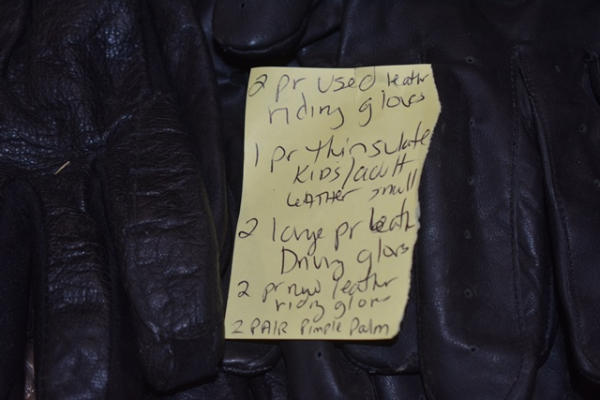 2 pr used leathr
riding gloves
1 pr thinsulate
KIDS/adult
LEATHER small
2 large pr leath
Driving gloves
2 pr new leather
riding glovs
2 PAIR Pimple Palm